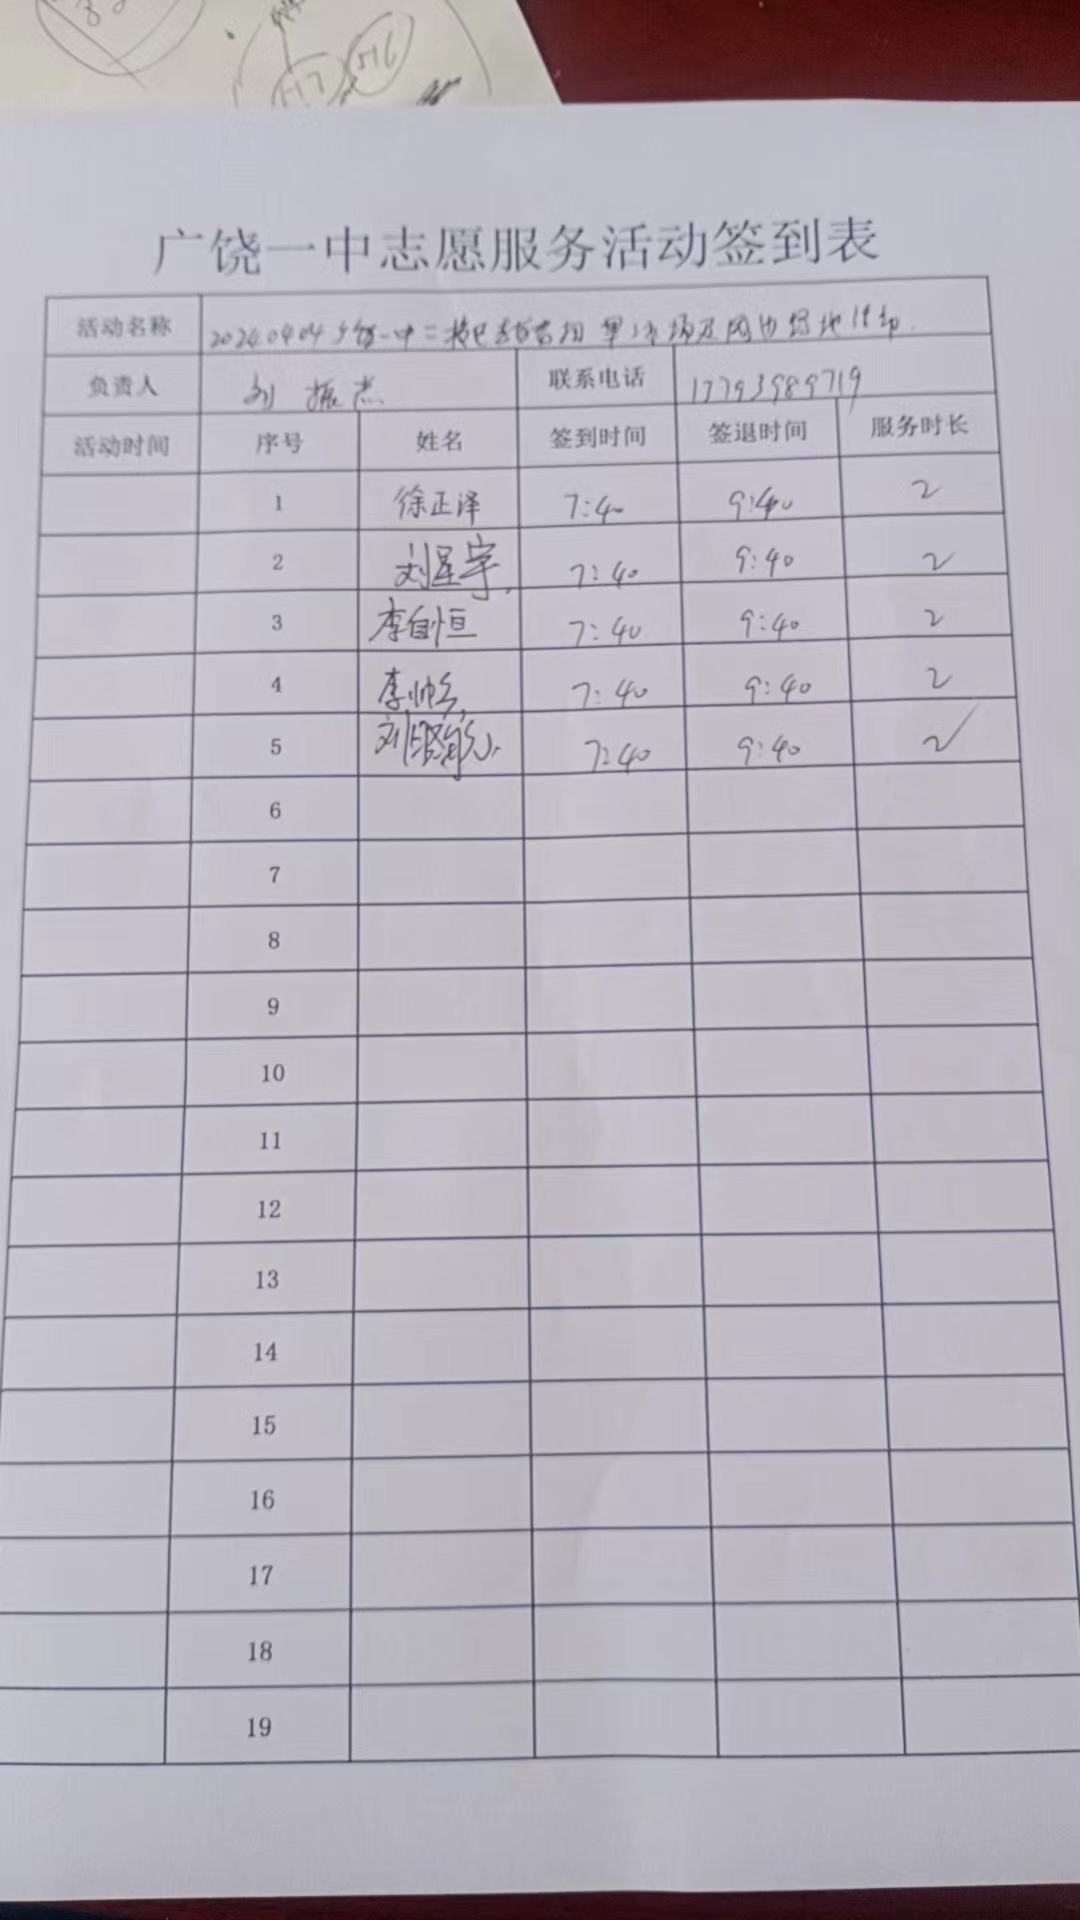 516
517
广饶一中志愿服务活动签到表
活动名称 20240404广饶一中二校区 及网内绿地
负责人 刘振杰 联系电话 17793989719
活动时间 序号 姓名 签到时间 签退时间 服务时长
1 徐正泽 7:40 9:40 2
2 刘星宇 7:40 9:40 2
3 李自恒 7:40 9:40 2
4 李帅兵 7:40 9:40 2
5 刘 航 7:40 9:40 2
6
7
8
9
10
11
12
13
14
15
16
17
18
19